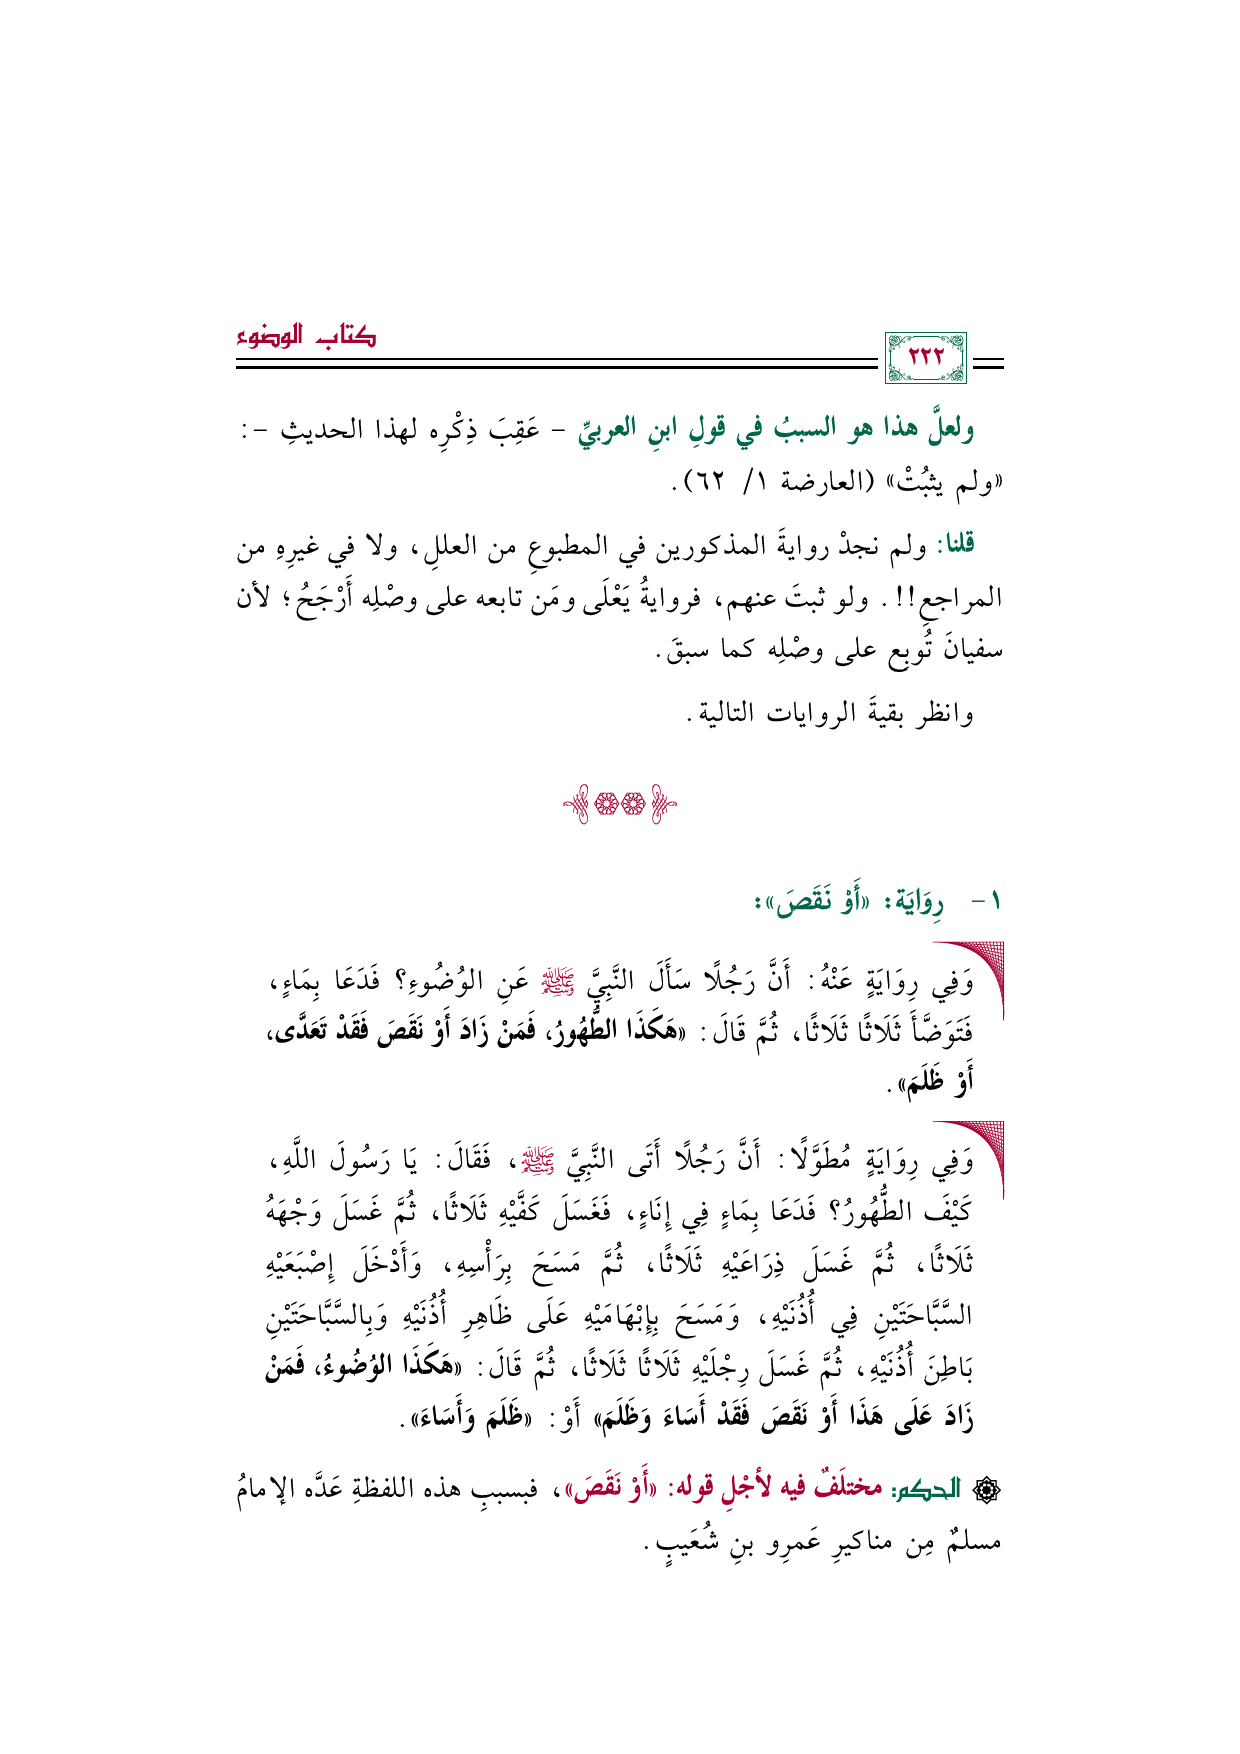 كتاب الوضوء
٢٢٢
ولعلَّ هذا هو السببُ في قولِ ابنِ العربيِّ - عَقِبَ ذِكْرِه لهذا الحديثِ -:
«ولم يثبُتْ» (العارضة ١/ ٦٢).
قلنا: ولم نجدْ روايةَ المذكورين في المطبوعِ من العللِ، ولا في غيرِهِ من
المراجعِ!!. ولو ثبتَ عنهم، فروايةُ يَعْلَى ومَن تابعه على وصْلِه أَرْجَحُ؛ لأن
سفيانَ تُوبِع على وصْلِه كما سبقَ.
وانظر بقيةَ الروايات التالية.
١- رِوَايَة: «أَوْ نَقَصَ»:
وَفِي رِوَايَةٍ عَنْهُ: أَنَّ رَجُلًا سَأَلَ النَّبِيَّ ﷺ عَنِ الوُضُوءِ؟ فَدَعَا بِمَاءٍ،
فَتَوَضَّأَ ثَلَاثًا ثَلَاثًا، ثُمَّ قَالَ: «هَكَذَا الطُّهُورُ، فَمَنْ زَادَ أَوْ نَقَصَ فَقَدْ تَعَدَّى،
أَوْ ظَلَمَ».
وَفِي رِوَايَةٍ مُطَوَّلًا: أَنَّ رَجُلًا أَتَى النَّبِيَّ ﷺ، فَقَالَ: يَا رَسُولَ اللَّهِ،
كَيْفَ الطُّهُورُ؟ فَدَعَا بِمَاءٍ فِي إِنَاءٍ، فَغَسَلَ كَفَّيْهِ ثَلَاثًا، ثُمَّ غَسَلَ وَجْهَهُ
ثَلَاثًا، ثُمَّ غَسَلَ ذِرَاعَيْهِ ثَلَاثًا، ثُمَّ مَسَحَ بِرَأْسِهِ، وَأَدْخَلَ إِصْبَعَيْهِ
السَّبَّاحَتَيْنِ فِي أُذُنَيْهِ، وَمَسَحَ بِإِبْهَامَيْهِ عَلَى ظَاهِرِ أُذُنَيْهِ وَبِالسَّبَّاحَتَيْنِ
بَاطِنَ أُذُنَيْهِ، ثُمَّ غَسَلَ رِجْلَيْهِ ثَلَاثًا ثَلَاثًا، ثُمَّ قَالَ: «هَكَذَا الوُضُوءُ، فَمَنْ
زَادَ عَلَى هَذَا أَوْ نَقَصَ فَقَدْ أَسَاءَ وَظَلَمَ» أَوْ: «ظَلَمَ وَأَسَاءَ».
الحكم: مختلَفٌ فيه لأجْلِ قوله: «أَوْ نَقَصَ»، فبسببِ هذه اللفظةِ عَدَّه الإمامُ
مسلمٌ مِن مناكيرِ عَمرِو بنِ شُعَيبٍ.